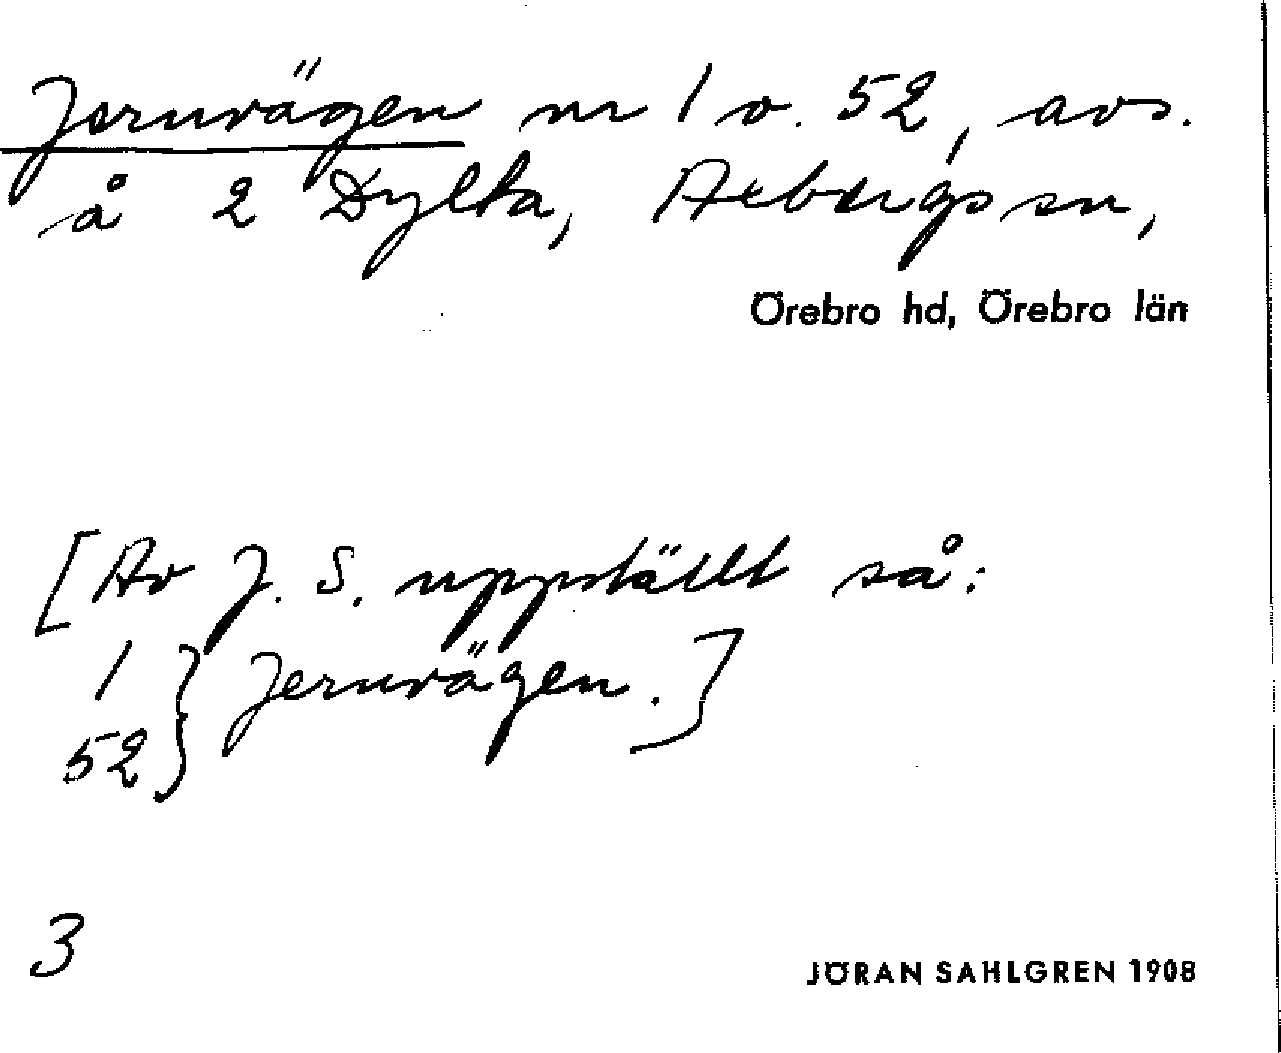 Jernvägen nr 1 o. 52, avs.
å 2 Dylta, Axbergs sn,
Örebro hd, Örebro län
[Av J. S. uppställt så:
1 } Jernvägen.]
52
3
JÖRAN SAHLGREN 1908